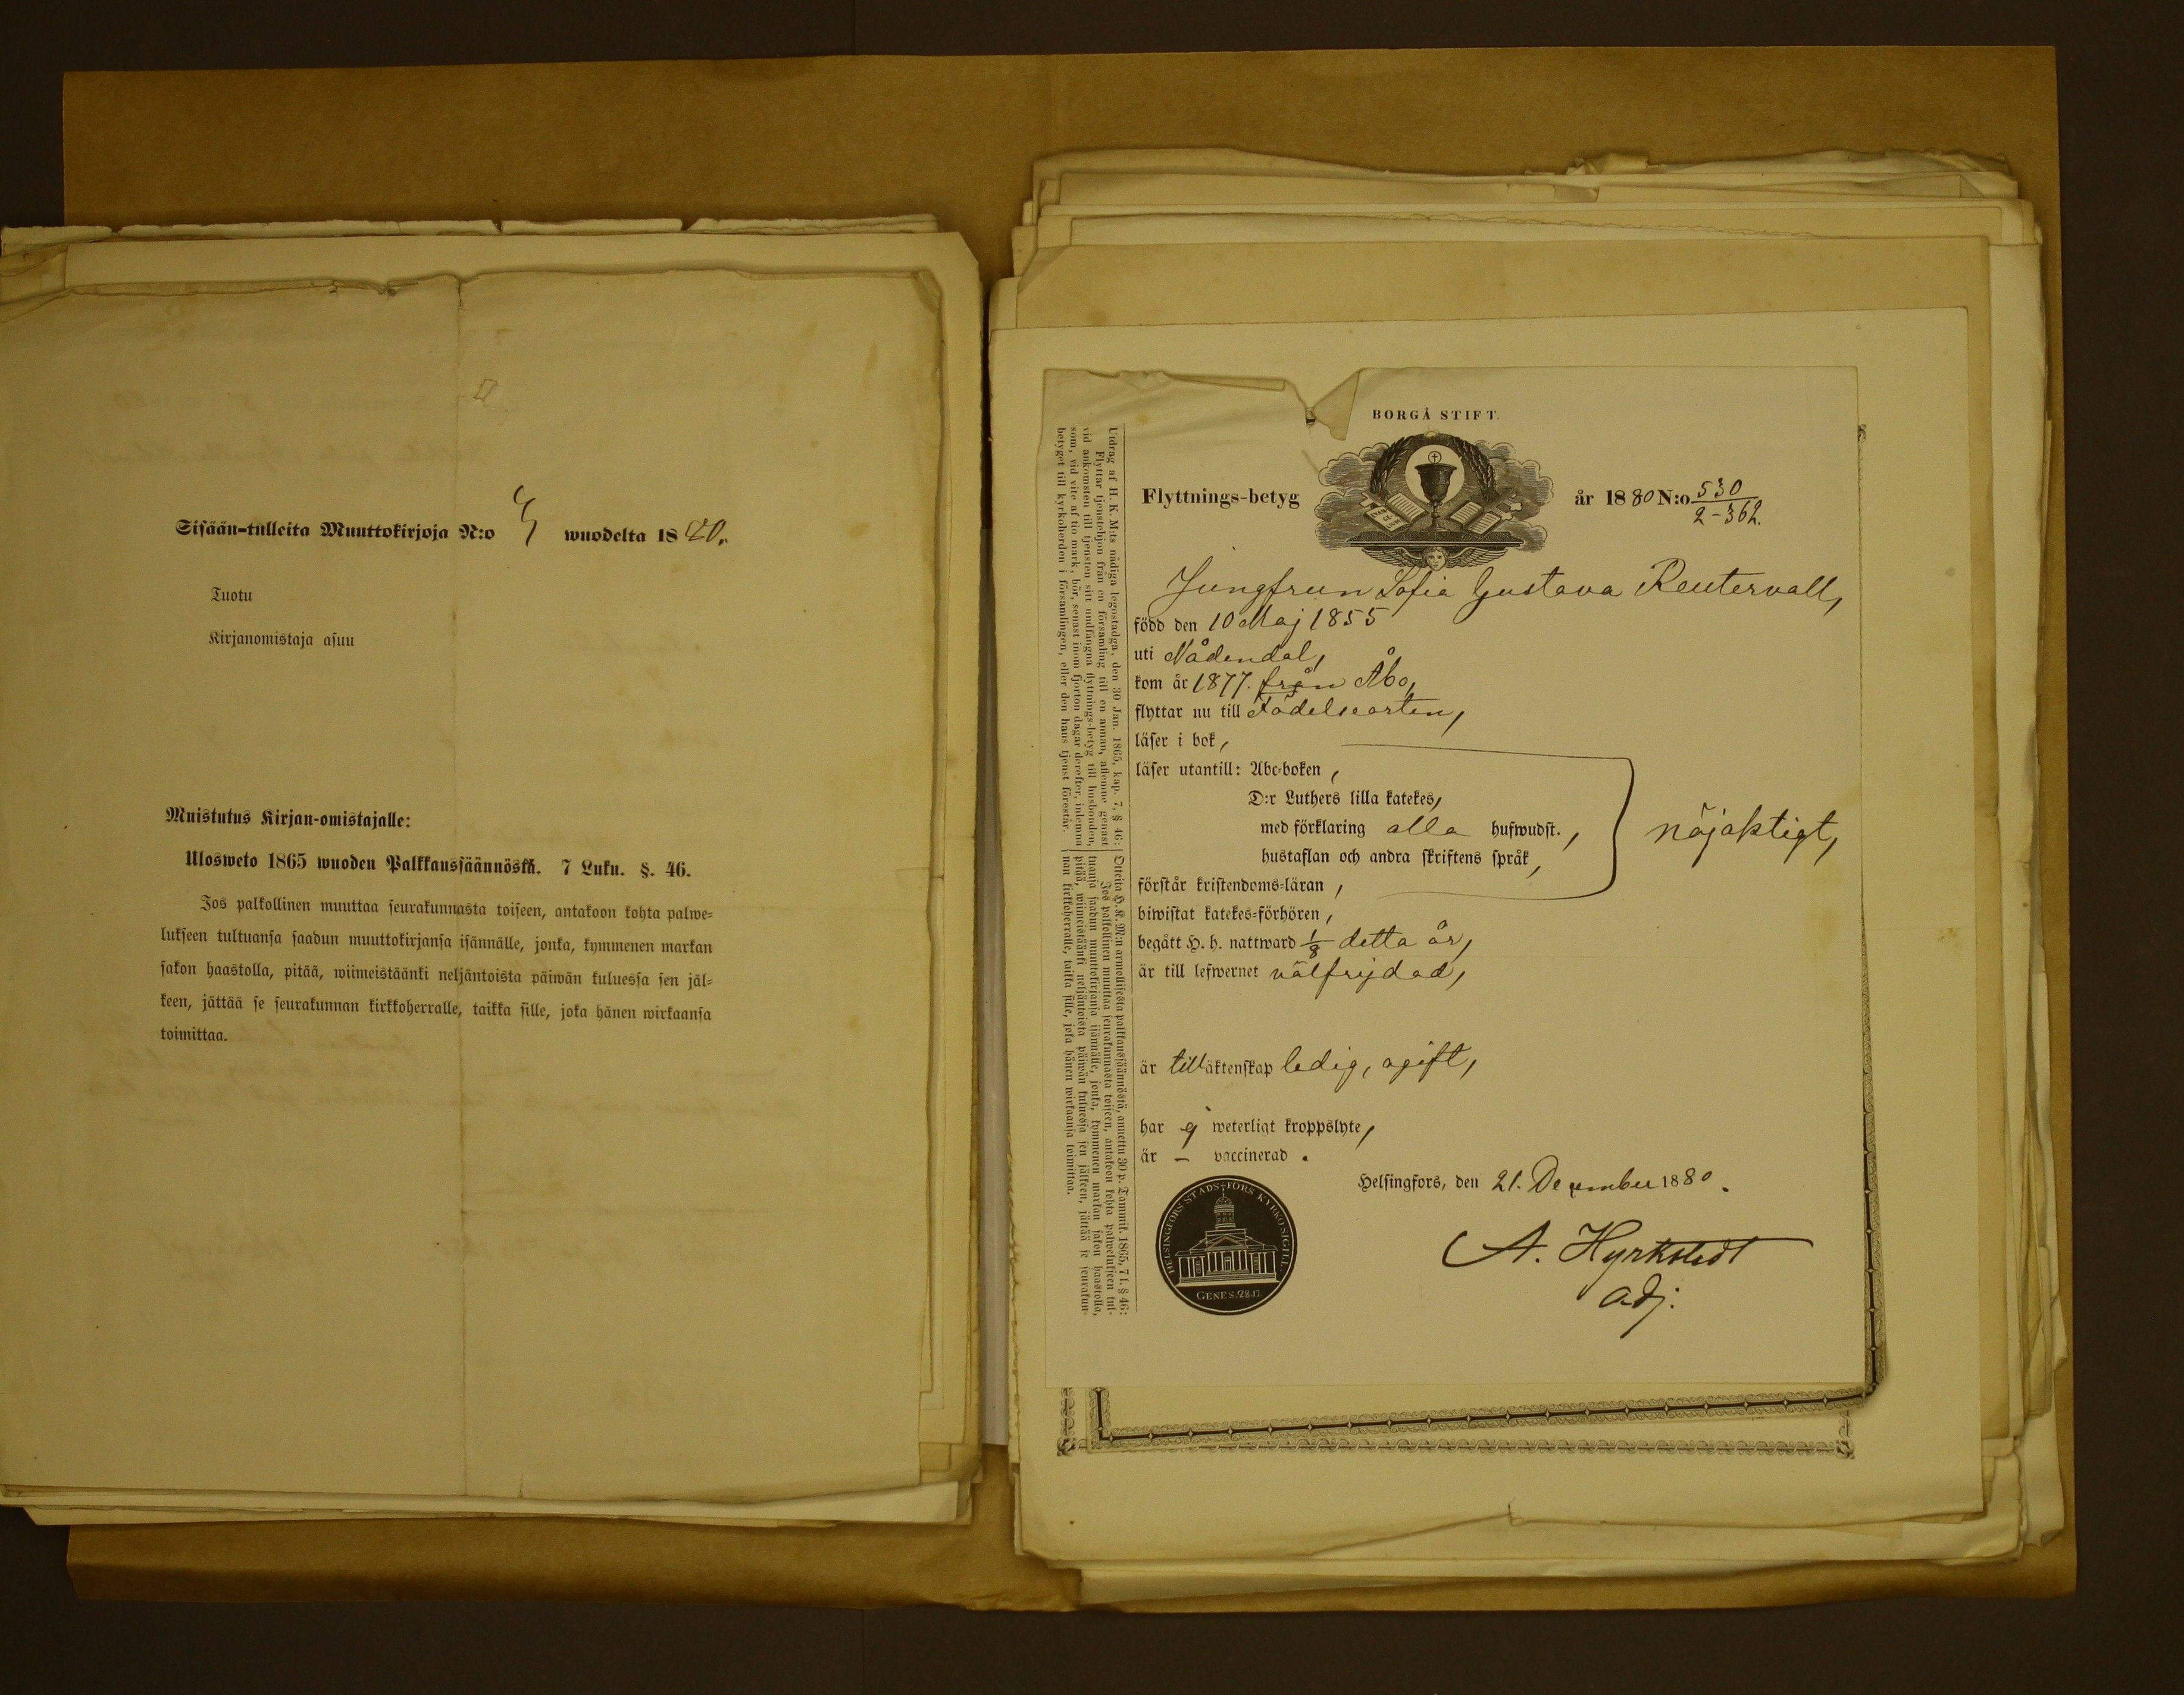 Sisään-tulleita Muuttokirjoja N:o 4 wuodelta 1880.
Tuotu
Kirjanomistaja asuu
Muistutus Kirjan-omistajalle:
Ulosweto 1865 wuoden Palkkaussäännöstä. 7 Luku. §. 46.
Jos palkollinen muuttaa seurakunnasta toiseen, antakoon kohta palwe=
lukseen tultuansa saadun muuttokirjansa isännälle, jonka, kymmenen markan
sakon haastolla, pitää, wiimeistäänki neljäntoista päiwän kuluessa sen jäl=
keen, jättää se seurakunnan kirkkoherralle, taikka sille, joka hänen wirkaansa
toimittaa.
BORGÅ STIFT.
Flyttnings-betyg
år 1880 N:o 530
2-362.
Jungfrun Sofia Gustava Reutervall,
född den 10 Maj 1855
uti Nådendal,
kom år 1877. från Åbo,
flyttar nu till Födelseorten,
läser i bok,
läser utantill: Abc-boken,
D:r Luthers lilla katekes,
med förklaring alla hufwudst.,
hustaflan och andra skriftens språk,
nöjaktigt,
förstår kristendoms-läran,
biwistat katekes-förhören,
begått H. h. nattward 1/8 detta år,
är till lefwernet välfrejdad,
är till äktenskap ledig, ogift,
har ej weterligt kroppslyte,
är — vaccinerad.
Helsingfors, den 21. December 1880.
A. Hyrkstedt
adj.
HELSINGFORS STADS-FÖRS KYRKO SIGILL.
GENES. 28.17.
Utdrag af H. K. M:ts nådiga legostadga, den 30 Jan. 1865, kap. 7, § 46:
Flyttar tjenstehjon från en församling till en annan, aflemne genast
vid ankomsten till tjensten sitt undfångna flyttnings-betyg till husbonden,
som, vid vite af tio mark, bör, senast inom fjorton dagar derefter, inlemna
betyget till kyrkoherden i församlingen, eller den hans tjenst förestår.
Otteita H. K. M:n armollisesta palkkaussäännöstä, annettu 30 p. Tammik. 1865, 7 l. § 46:
Jos palkollinen muuttaa seurakunnasta toiseen, antakoon kohta palwelukseen tul=
tuansa saadun muuttokirjansa isännälle, jonka, kymmenen markan sakon haastolla,
pitää, wiimeistäänki neljäntoista päiwän kuluessa sen jälkeen, jättää se seurakun=
nan kirkkoherralle, taikka sille, joka hänen wirkaansa toimittaa.